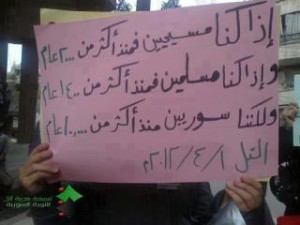 إذا كنا مسيحيين فمنذ أكثر من ٢٠٠٠ عام
وإذا كنا مسلمين فمنذ أكثر من ١٤٠٠ عام
ولكننا سوريين منذ أكثر من ١٠,٠٠٠ عام
التل ٢٠١٢/٤/١م